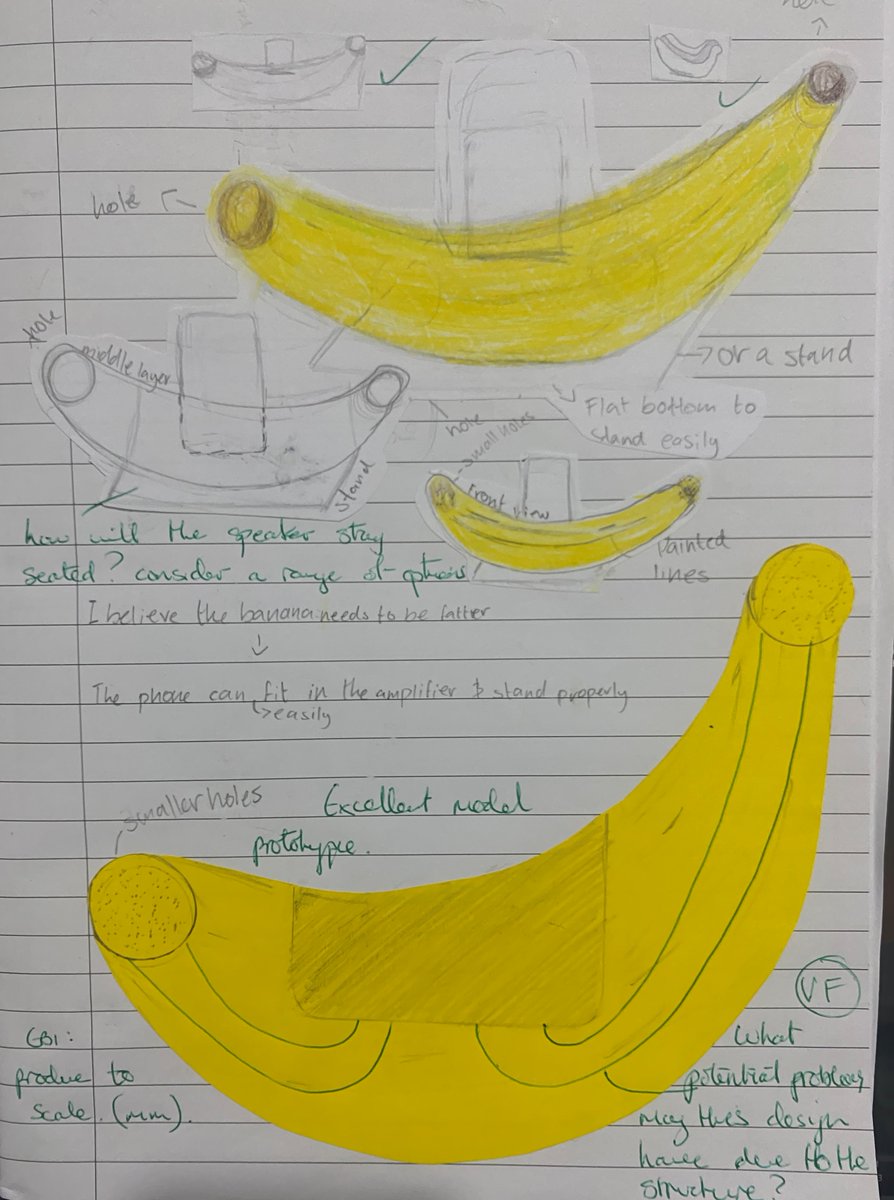 hole
hole
→ or a stand
hole
middle layer
Flat bottom to
stand easily
hole
small holes
stand
front view
Painted
lines
how will the speaker stay
seated? consider a range of options
I believe the banana needs to be fatter
↓
The phone can fit in the amplifier & stand properly
↳ easily
smaller holes
Excellent model
prototype.
VF
EBI:
produce to
scale. (mm).
What
potential problems
may this design
have due to the
structure?